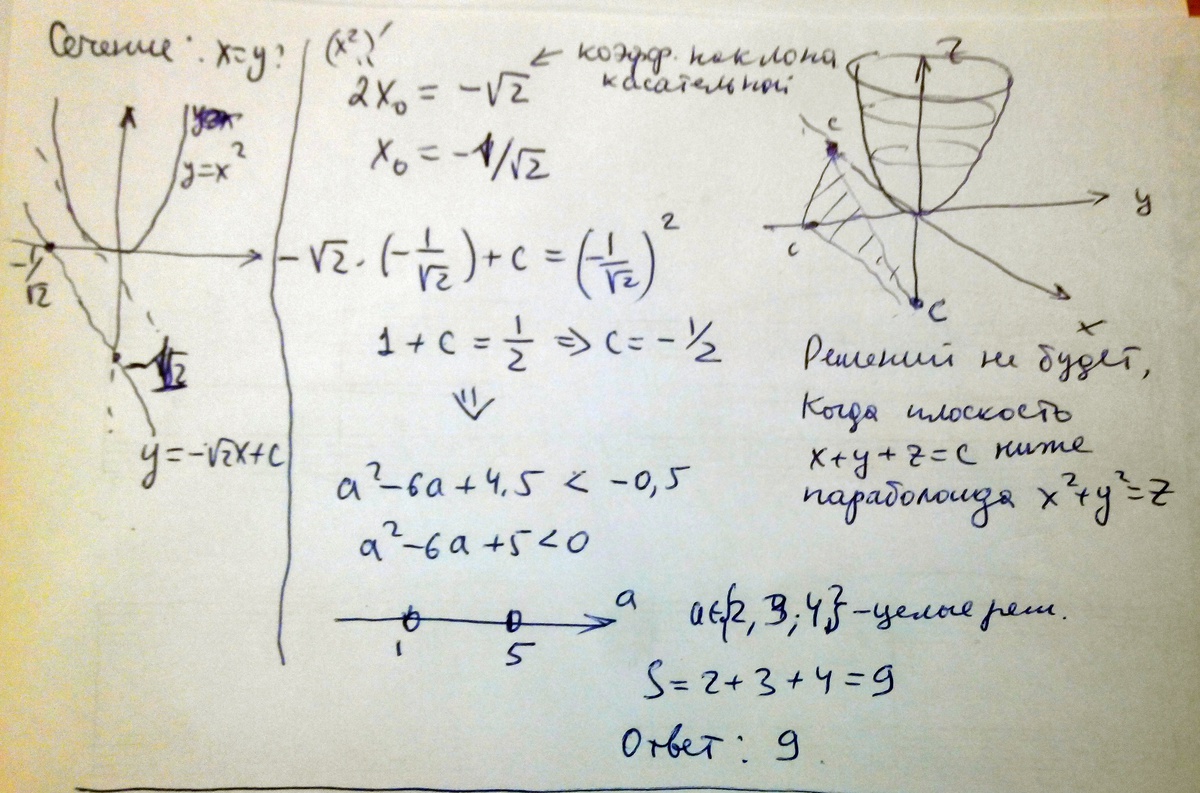 Сечение: x=y:
y=x²
-1/√2
y=-√2x+c
(x²)'
2x₀ = -√2 ← коэфф. наклона касательной
x₀ = -1/√2
-√2·(-1/√2)+c = (-1/√2)²
1+c = 1/2 ⇒ c = -1/2
⇓
a²-6a+4.5 < -0,5
a²-6a+5<0
1 5 a
z
y
x
c
c
C
Решений не будет,
когда плоскость
x+y+z=c ниже
параболоида x²+y²=z
a∈{2,3;4,}-целые реш.
S=2+3+4=9
Ответ: 9.